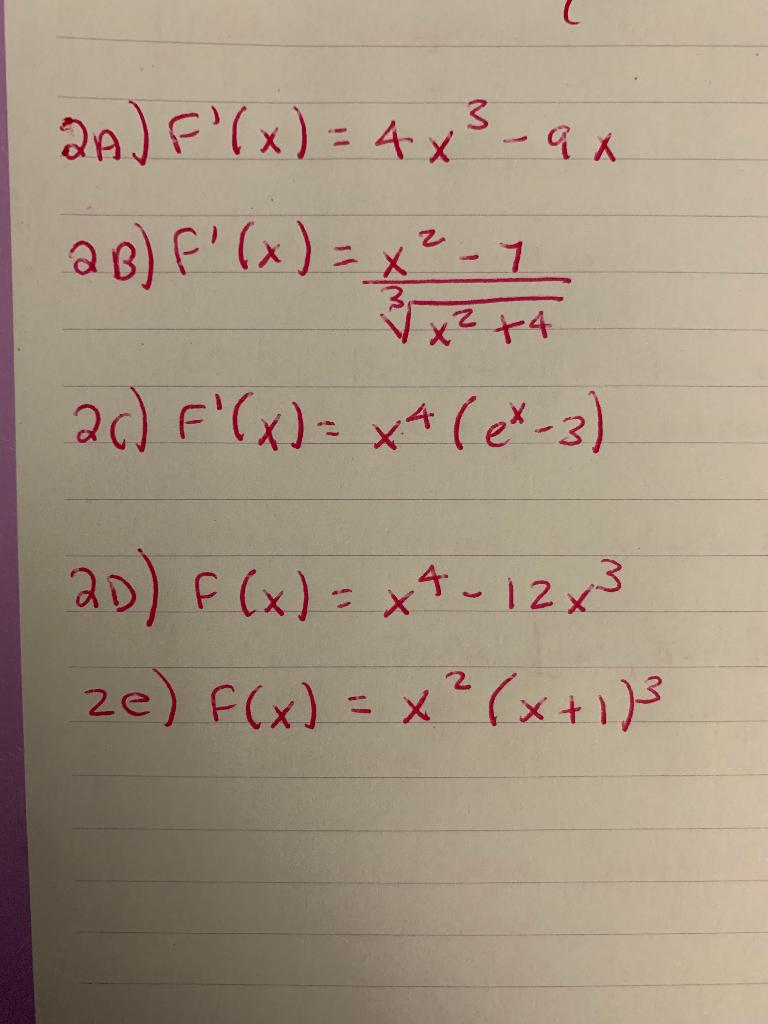 2A) F'(x) = 4x³ - 9x
2B) F'(x) = x² - 7
∛x² + 4
2c) F'(x) = x⁴(eˣ - 3)
2D) F(x) = x⁴ - 12x³
2e) F(x) = x²(x + 1)³